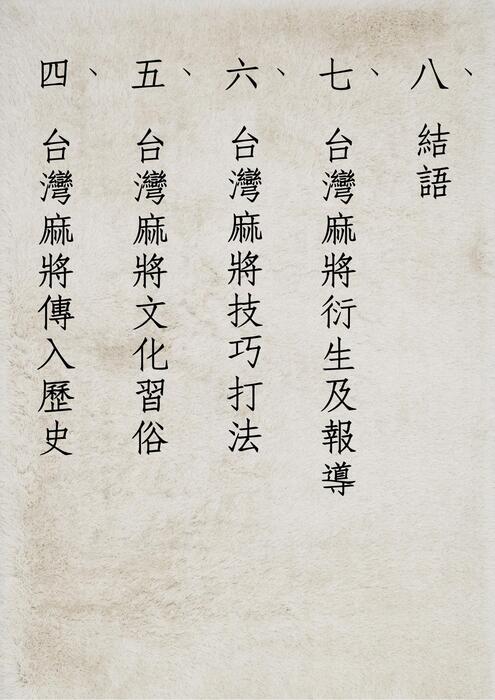 四、台灣麻將傳入歷史
五、台灣麻將文化習俗
六、台灣麻將技巧打法
七、台灣麻將衍生及報導
八、結語